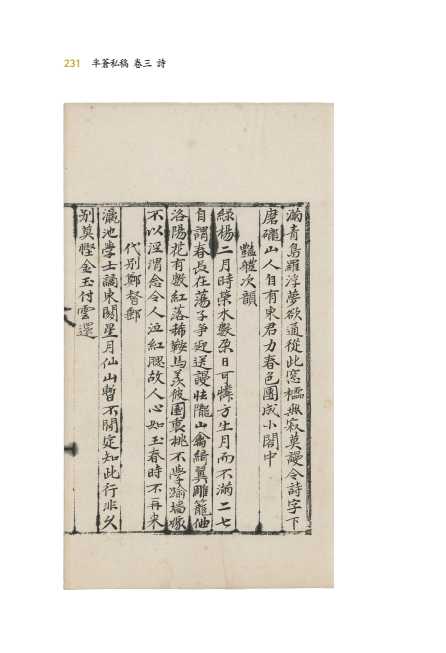 231 半蒼私稿 卷三 詩
滿青鳥羅浮夢欲通從此窓櫺無寂莫謾令詩字下
磨礲山人自有東君力春色團成小閤中
豔軆次韻
綠楊二月時榮水數盈日可憐方生月而不滿二七
自謂春長在蕩子爭迎送謾怯隴山禽綺翼雕籠
洛陽花有數紅落稀鞍馬羡彼園裏桃不學踰墻
不以淫渭念令人泣紅腮故人心如玉春時不再來
代别鄭督郵
瀛池學士謫東關星月仙山暫不關定知此行非久
别莫慳金玉付雲還